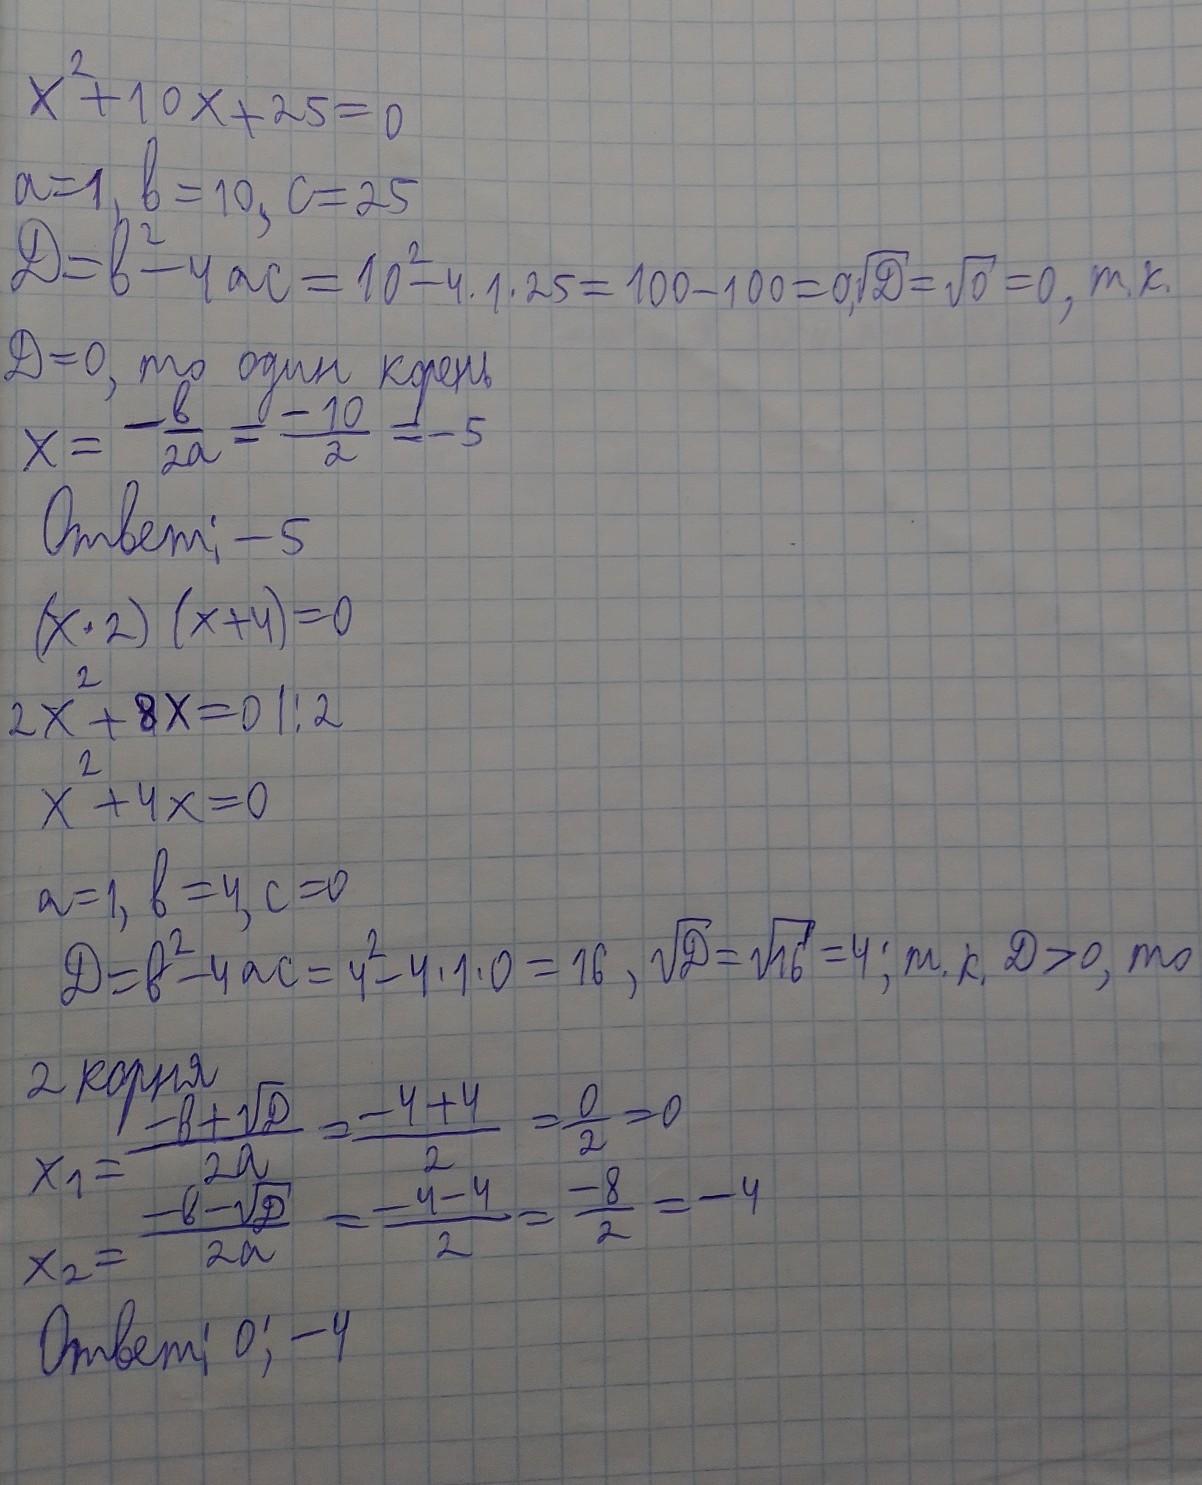 x²+10x+25=0
a=1, в=10, c=25
Д=в²-4ac=10²-4·1·25=100-100=0,√Д=√0=0, т.к.
Д=0, то один корень
x= -в/2a = -10/2 =-5
Ответ: -5
(x·2) (x+4)=0
2x²+8x=0 |:2
x²+4x=0
a=1, в=4, c=0
Д=в²-4ac=4²-4·1·0=16, √Д=√16=4; т.к. Д>0, то
2 корня
x₁= -в+√Д/2a = -4+4/2 = 0/2 =0
x₂= -в-√Д/2a = -4-4/2 = -8/2 = -4
Ответ: 0; -4